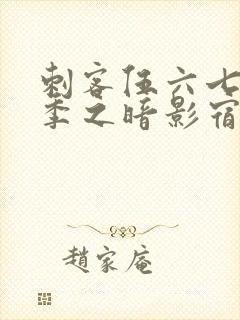 刺客伍六七
季之暗影宿
趙家庵